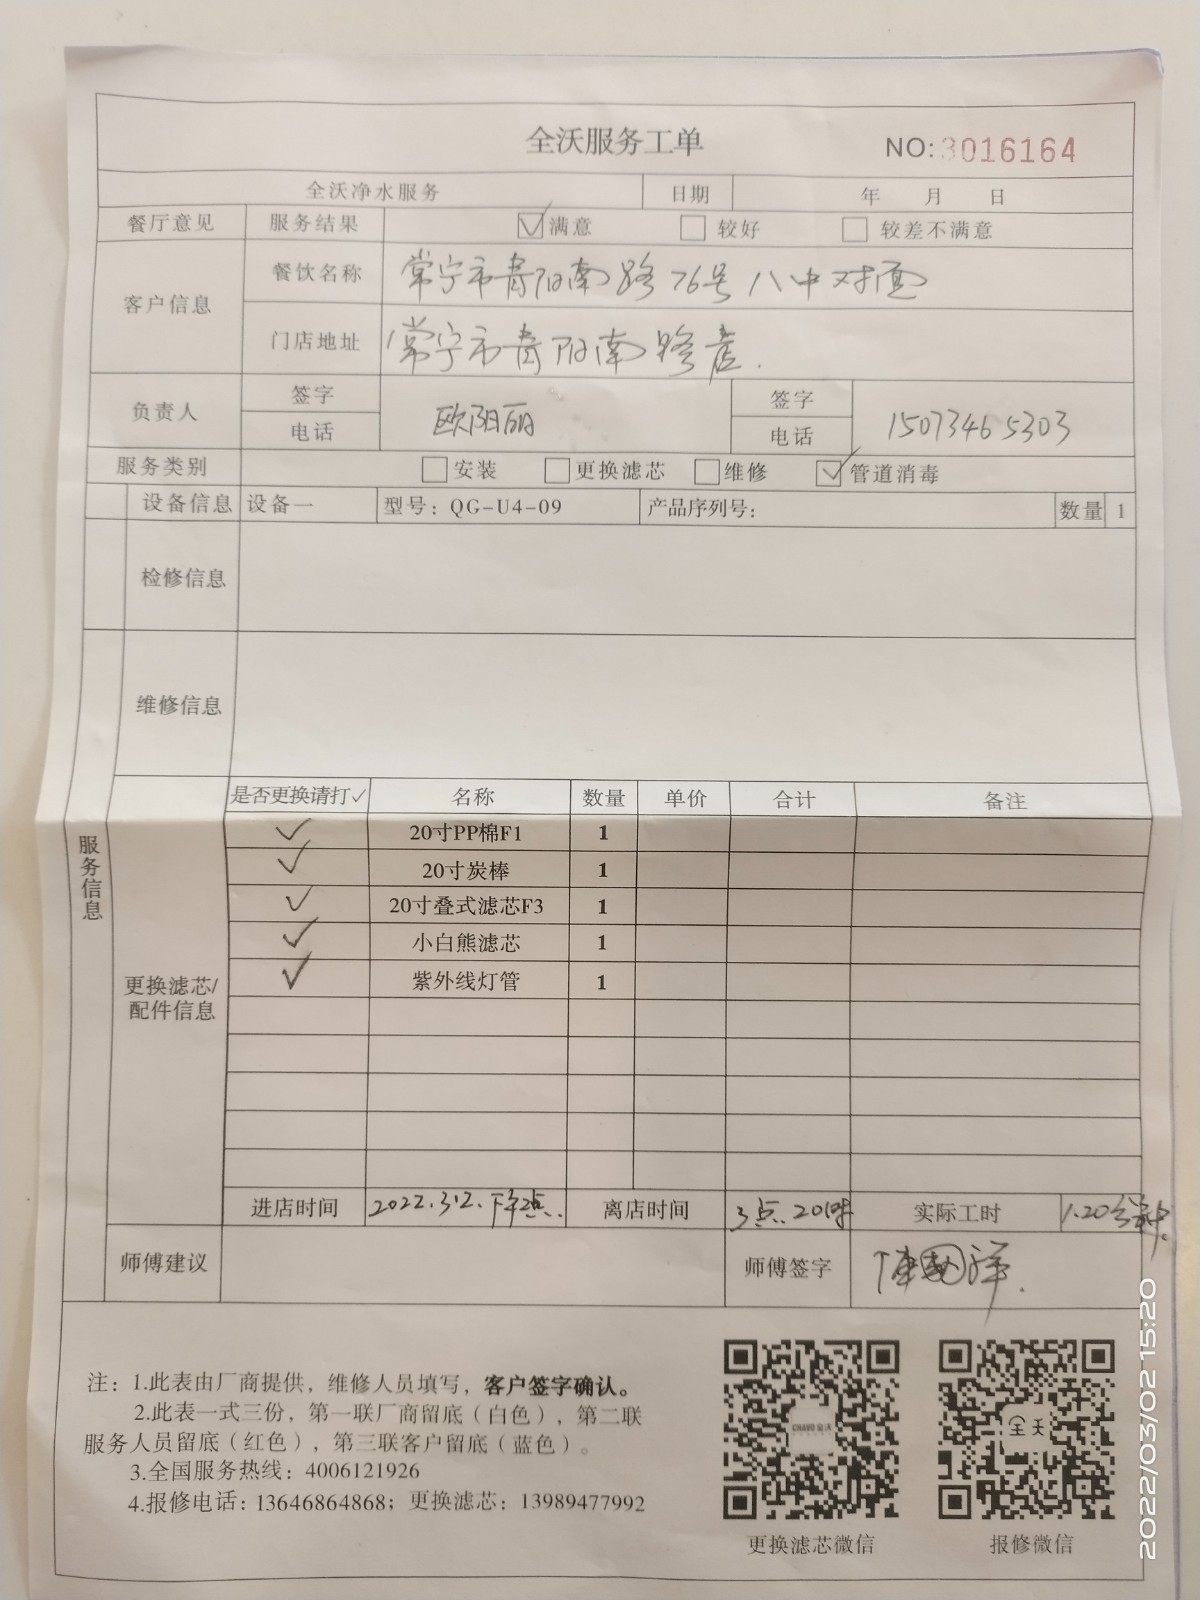 全沃服务工单 NO:3016164
全沃净水服务 日期 年 月 日
餐厅意见 服务结果 ☑满意 □较好 □较差不满意
客户信息 餐饮名称 常宁市青阳南路76号八中对面
门店地址 常宁市青阳南路店.
负责人 签字 电话 欧阳丽 签字 电话 15073465303
服务类别 □安装 □更换滤芯 □维修 ☑管道消毒
设备信息 设备一 型号：QG-U4-09 产品序列号： 数量 1
检修信息
维修信息
服务信息
是否更换请打✓ 名称 数量 单价 合计 备注
✓ 20寸PP棉F1 1
✓ 20寸炭棒 1
✓ 20寸叠式滤芯F3 1
✓ 小白熊滤芯 1
✓ 紫外线灯管 1
更换滤芯/
配件信息
进店时间 2022.3.2.下午2点.. 离店时间 3点..20 实际工时 1.20分钟.
师傅建议 师傅签字 国祥.
注：1.此表由厂商提供，维修人员填写，客户签字确认。
2.此表一式三份，第一联厂商留底（白色），第二联
服务人员留底（红色），第三联客户留底（蓝色）。
3.全国服务热线：4006121926
4.报修电话：13646864868；更换滤芯：13989477992
全天
更换滤芯微信 报修微信
2022/03/02 15:20